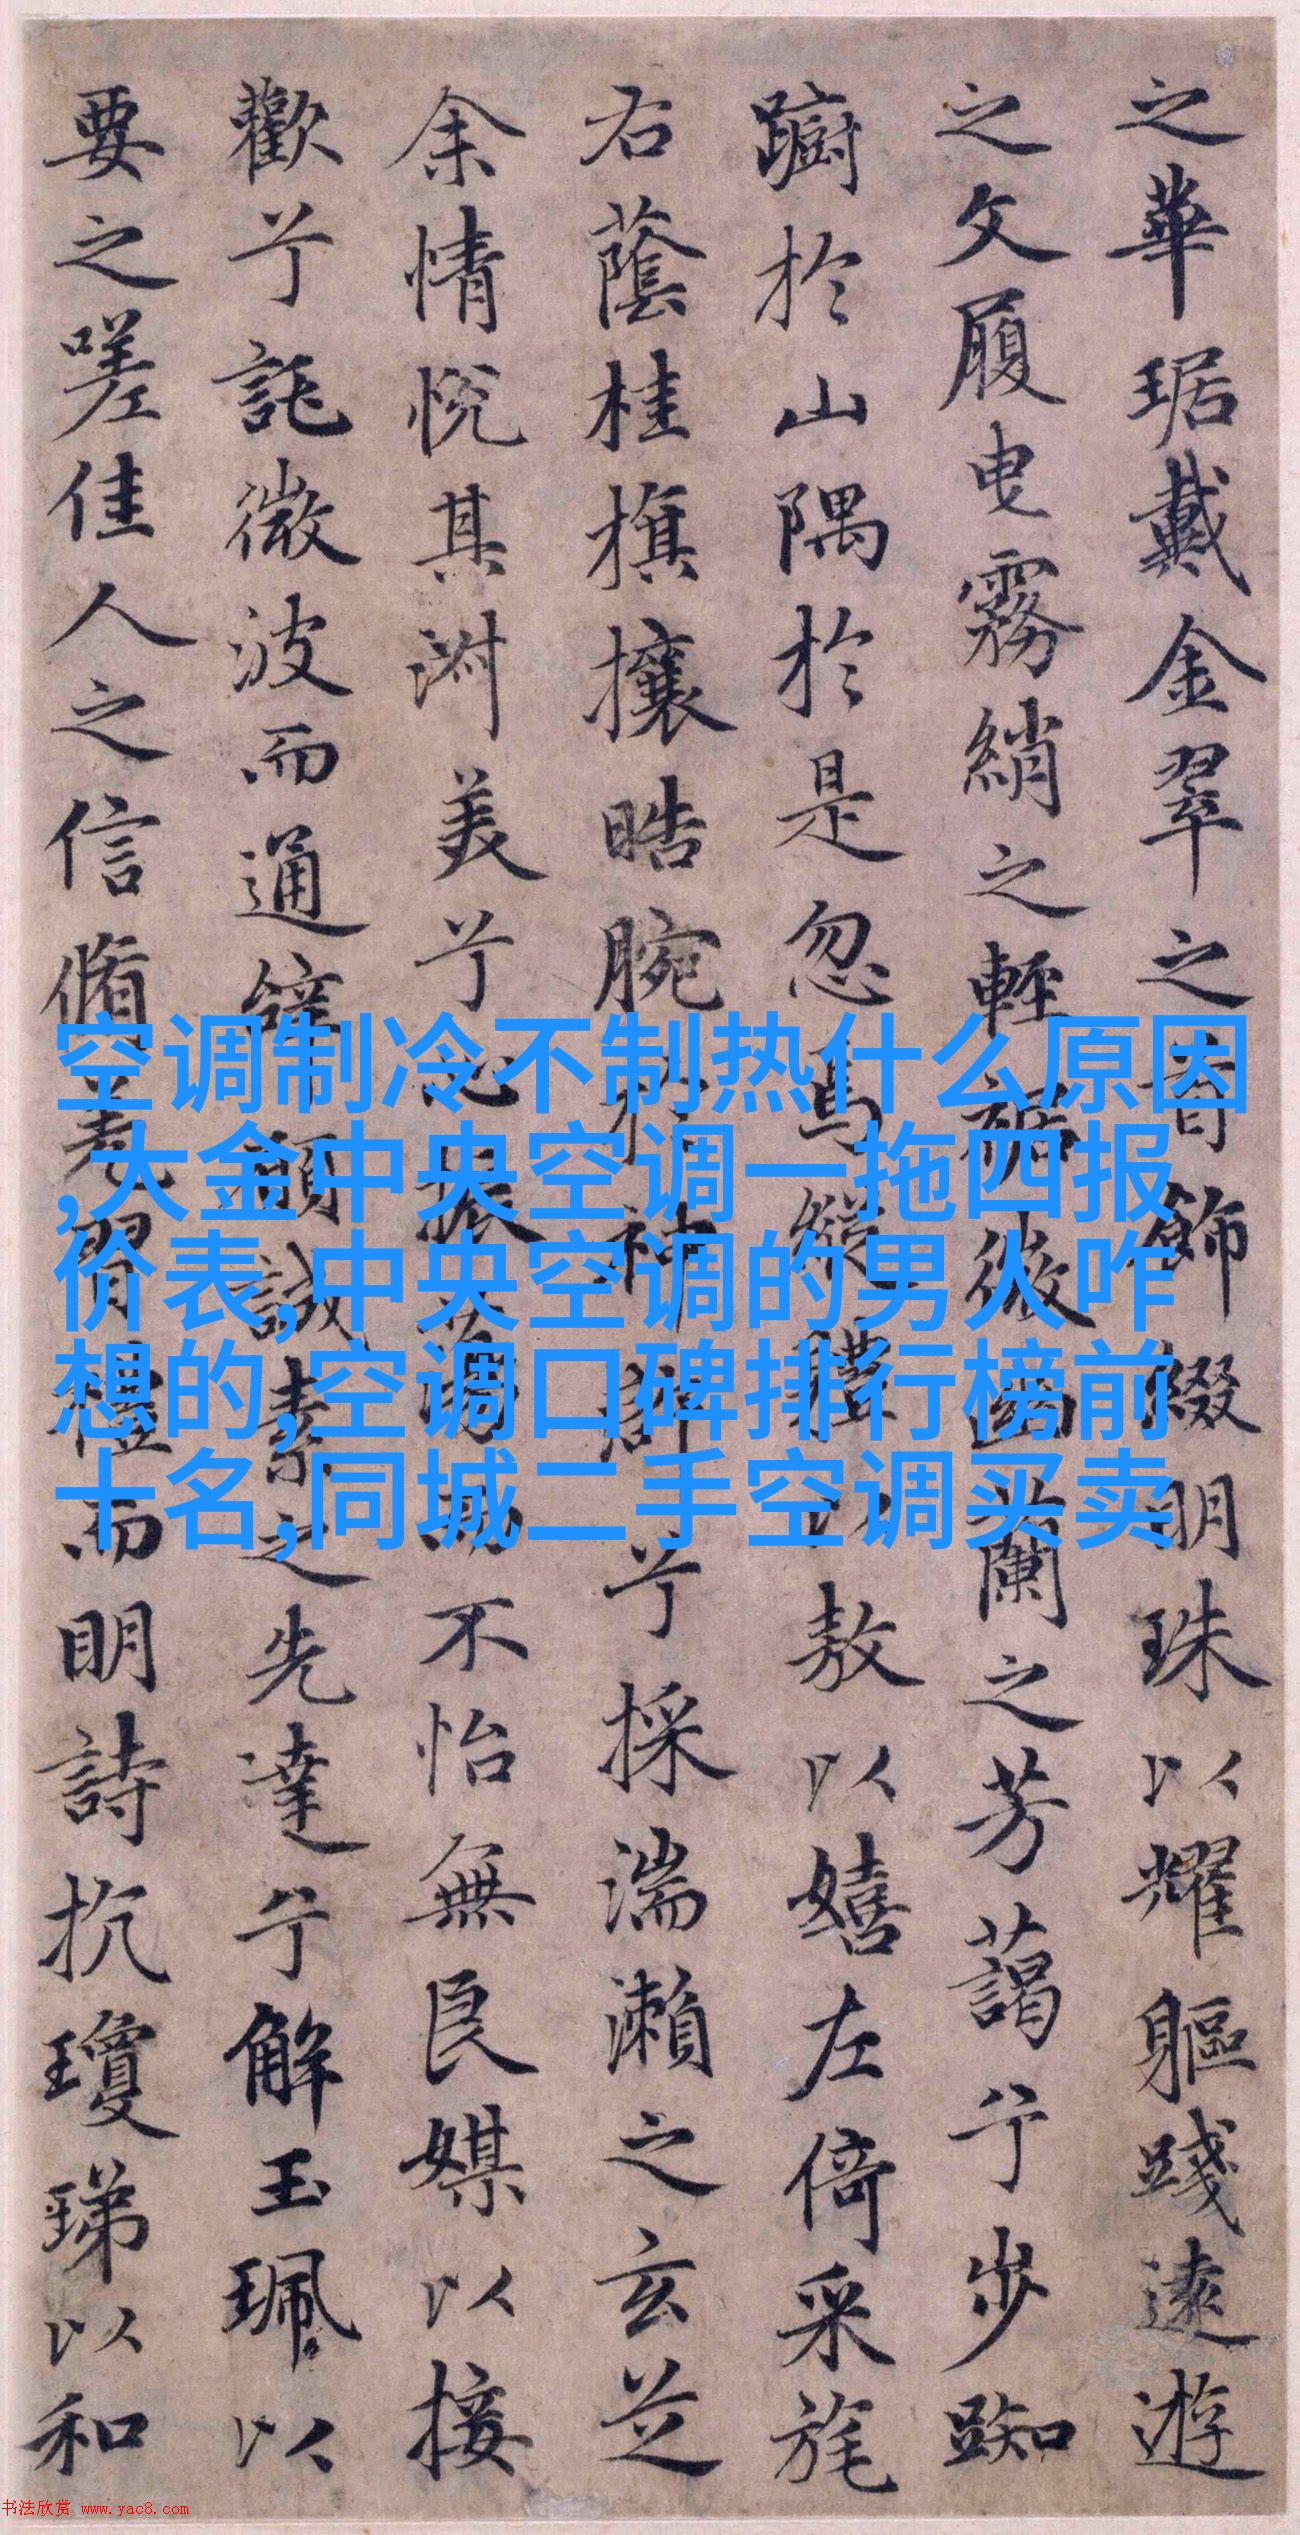 之華琚戴金翠之首飾綴明珠以耀軀踐遠遊
之文履曳霧綃之輕裾微幽蘭之芳藹兮步踟
躕於山隅於是忽焉縱體以敖以嬉左倚采旄
右蔭桂旗攘晧腕於神滸兮採湍瀨之玄芝
余情悅其淑美兮心振蕩而不怡無良媒以接
歡兮託微波而通辭願誠素之先達兮解玉珮以
要之嗟佳人之信脩羌習禮而明詩抗瓊珶以和
空调制冷不制热什么原因
,大金中央空调一拖四报
价表,中央空调的男人咋
想的,空调口碑排行榜前
十名,同城二手空调买卖
书法欣赏 www.yac8.com